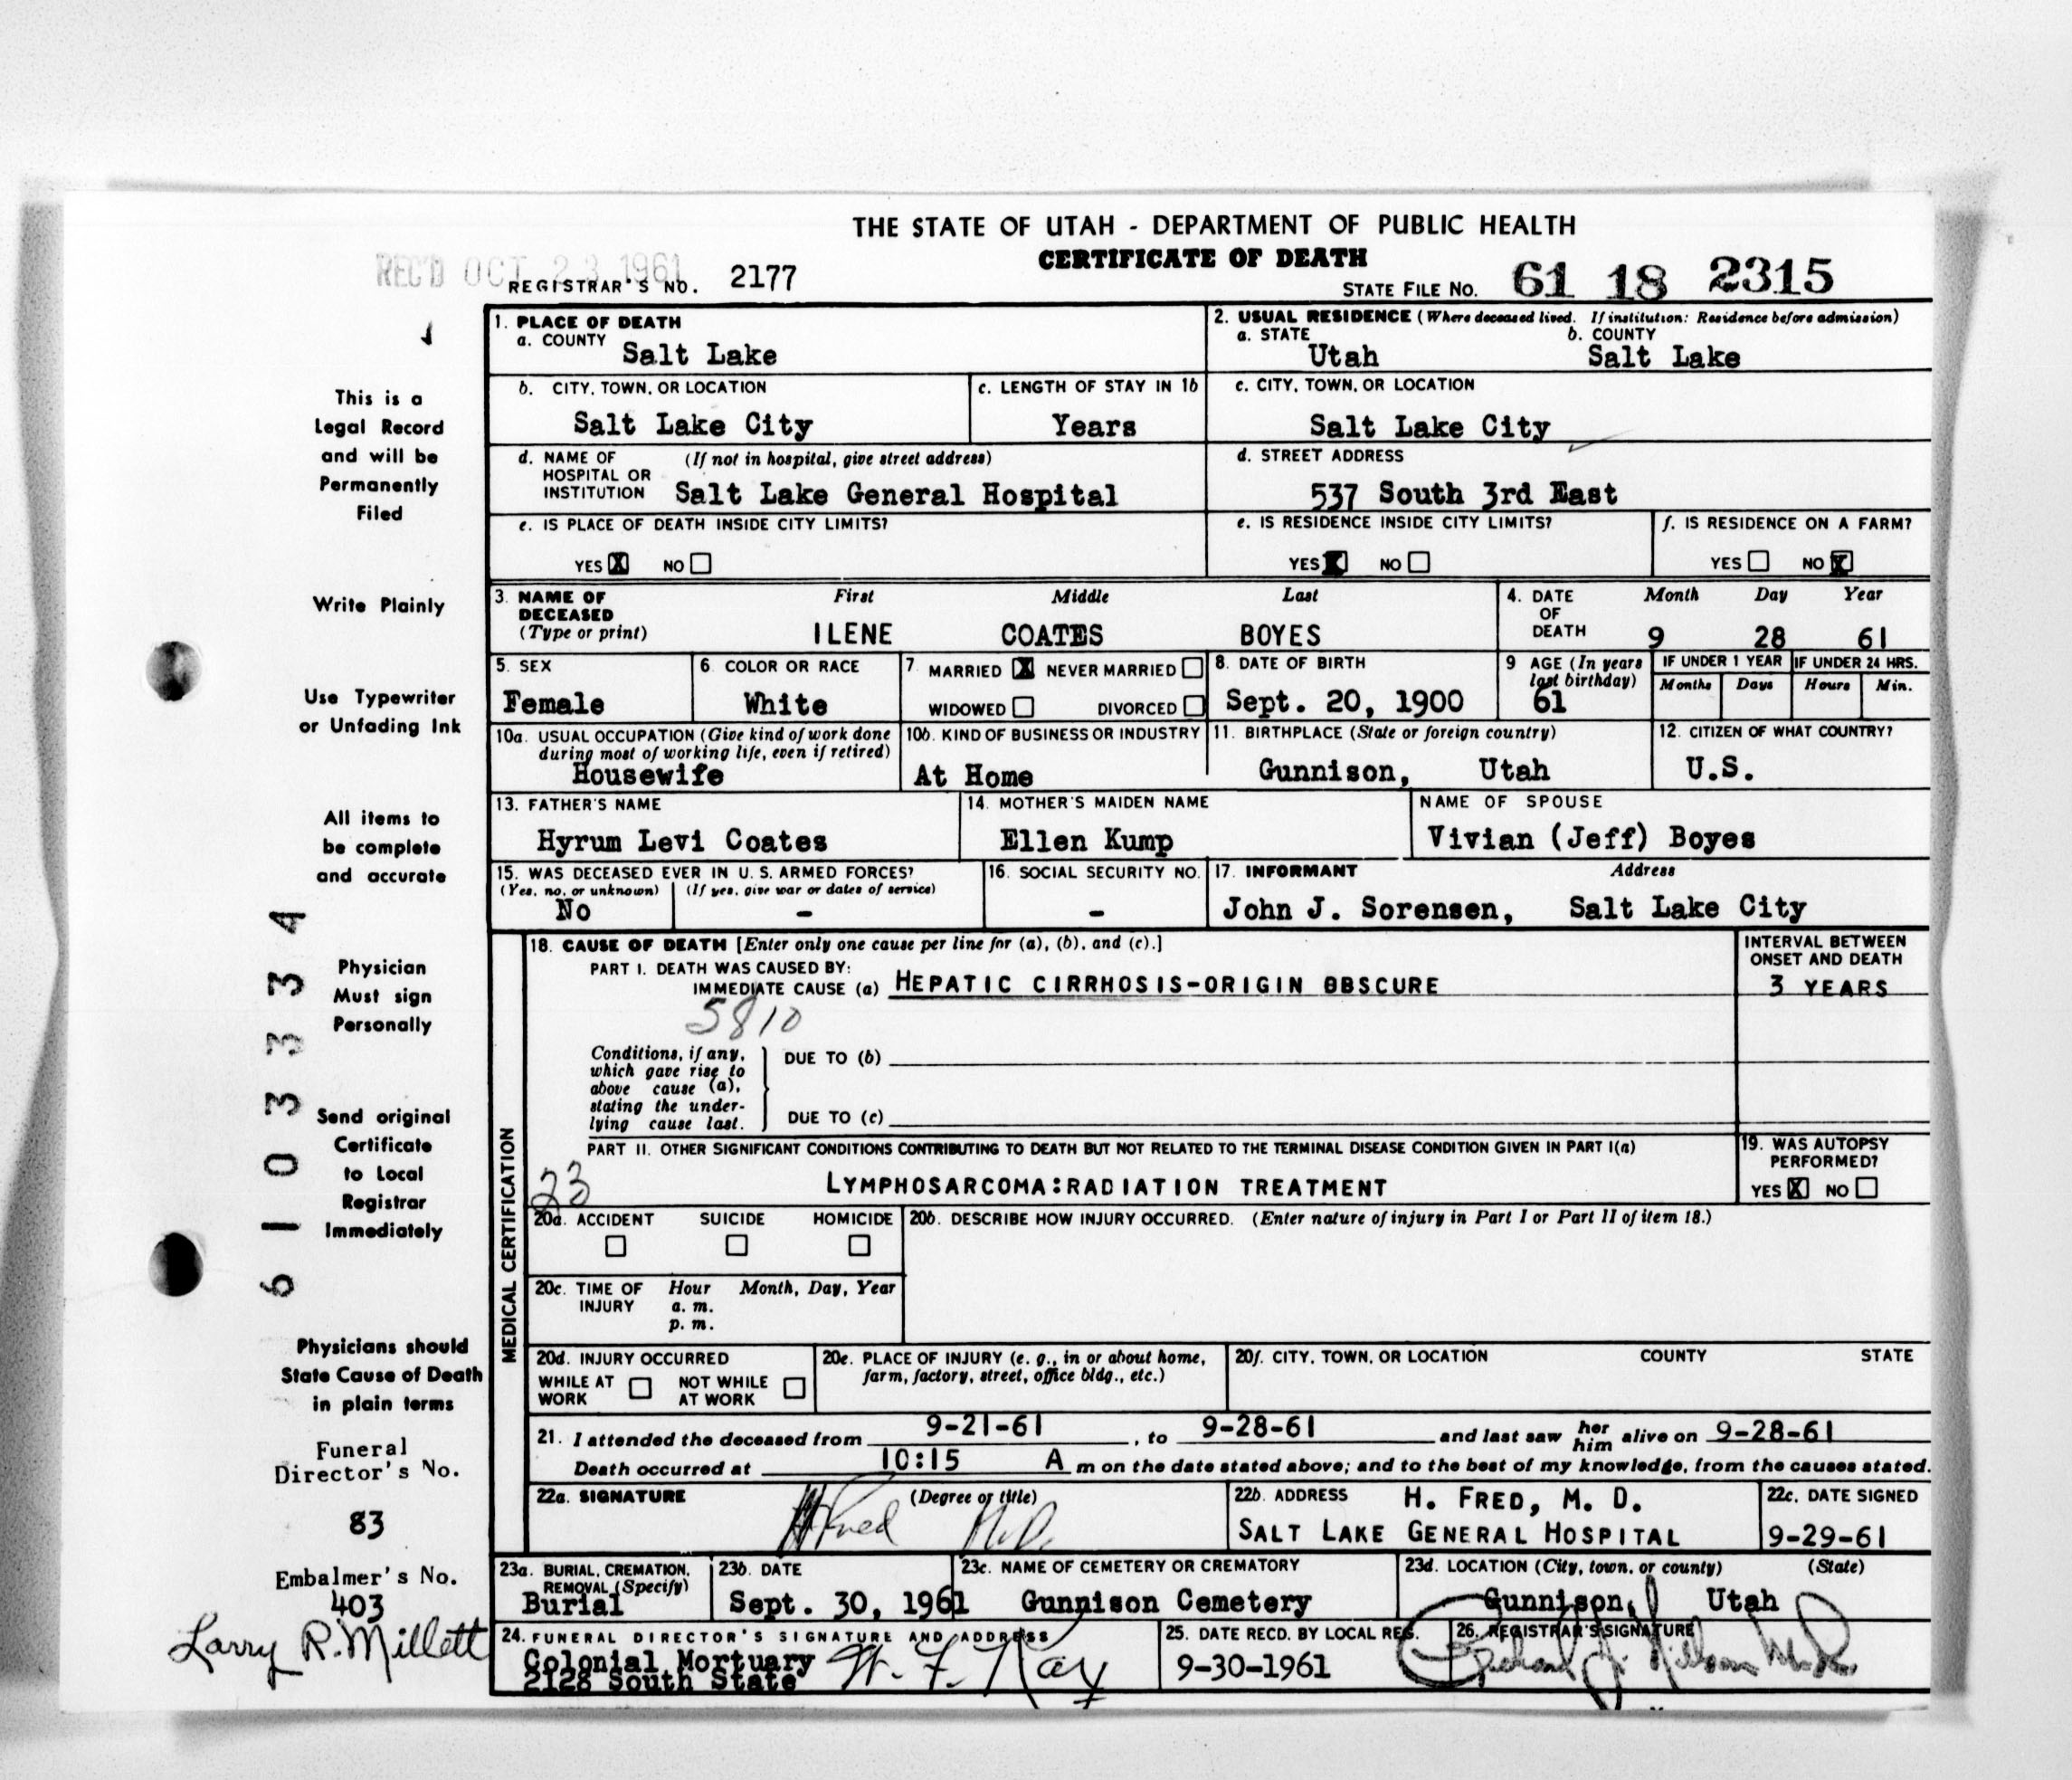 THE STATE OF UTAH - DEPARTMENT OF PUBLIC HEALTH
CERTIFICATE OF DEATH
REC'D OCT 23 1961
REGISTRAR'S NO. 2177
STATE FILE NO. 61 18 2315
This is a
Legal Record
and will be
Permanently
Filed
Write Plainly
Use Typewriter
or Unfading Ink
All items to
be complete
and accurate
Physician
Must sign
Personally
Send original
Certificate
to Local
Registrar
Immediately
Physicians should
State Cause of Death
in plain terms
Funeral
Director's No.
83
Embalmer's No.
403
Larry R. Millett
61033334
1. PLACE OF DEATH
a. COUNTY Salt Lake
2. USUAL RESIDENCE (Where deceased lived. If institution: Residence before admission)
a. STATE Utah b. COUNTY Salt Lake
b. CITY, TOWN, OR LOCATION
Salt Lake City
c. LENGTH OF STAY IN 1b
Years
c. CITY, TOWN, OR LOCATION
Salt Lake City
d. NAME OF HOSPITAL OR INSTITUTION (If not in hospital, give street address)
Salt Lake General Hospital
d. STREET ADDRESS
537 South 3rd East
e. IS PLACE OF DEATH INSIDE CITY LIMITS?
YES X NO
e. IS RESIDENCE INSIDE CITY LIMITS?
YES X NO
f. IS RESIDENCE ON A FARM?
YES NO X
3. NAME OF DECEASED (Type or print)
First Middle Last
ILENE COATES BOYES
4. DATE OF DEATH
Month Day Year
9 28 61
5. SEX
Female
6. COLOR OR RACE
White
7. MARRIED X NEVER MARRIED
WIDOWED DIVORCED
8. DATE OF BIRTH
Sept. 20, 1900
9 AGE (In years last birthday)
61
IF UNDER 1 YEAR
Months Days
IF UNDER 24 HRS.
Hours Min.
10a. USUAL OCCUPATION (Give kind of work done
during most of working life, even if retired)
Housewife
10b. KIND OF BUSINESS OR INDUSTRY
At Home
11. BIRTHPLACE (State or foreign country)
Gunnison, Utah
12. CITIZEN OF WHAT COUNTRY?
U.S.
13. FATHER'S NAME
Hyrum Levi Coates
14. MOTHER'S MAIDEN NAME
Ellen Kump
NAME OF SPOUSE
Vivian (Jeff) Boyes
15. WAS DECEASED EVER IN U. S. ARMED FORCES?
(Yes, no, or unknown) (If yes, give war or dates of service)
No -
16. SOCIAL SECURITY NO.
-
17. INFORMANT Address
John J. Sorensen, Salt Lake City
MEDICAL CERTIFICATION
18. CAUSE OF DEATH [Enter only one cause per line for (a), (b), and (c).]
PART I. DEATH WAS CAUSED BY:
IMMEDIATE CAUSE (a) HEPATIC CIRRHOSIS-ORIGIN OBSCURE
5810
INTERVAL BETWEEN
ONSET AND DEATH
3 YEARS
Conditions, if any,
which gave rise to
above cause (a),
stating the under-
lying cause last.
DUE TO (b)
DUE TO (c)
PART II. OTHER SIGNIFICANT CONDITIONS CONTRIBUTING TO DEATH BUT NOT RELATED TO THE TERMINAL DISEASE CONDITION GIVEN IN PART I(a)
23
LYMPHOSARCOMA:RADIATION TREATMENT
19. WAS AUTOPSY
PERFORMED?
YES X NO
20a. ACCIDENT SUICIDE HOMICIDE
20b. DESCRIBE HOW INJURY OCCURRED. (Enter nature of injury in Part I or Part II of item 18.)
20c. TIME OF INJURY
Hour Month, Day, Year
a. m.
p. m.
20d. INJURY OCCURRED
WHILE AT WORK NOT WHILE AT WORK
20e. PLACE OF INJURY (e. g., in or about home,
farm, factory, street, office bldg., etc.)
20f. CITY, TOWN, OR LOCATION COUNTY STATE
21. I attended the deceased from 9-21-61, to 9-28-61 and last saw her him alive on 9-28-61
Death occurred at 10:15 A m on the date stated above; and to the best of my knowledge, from the causes stated.
22a. SIGNATURE (Degree or title)
H Fred M.D.
22b. ADDRESS H. FRED, M. D.
SALT LAKE GENERAL HOSPITAL
22c. DATE SIGNED
9-29-61
23a. BURIAL, CREMATION,
REMOVAL (Specify)
Burial
23b. DATE
Sept. 30, 1961
23c. NAME OF CEMETERY OR CREMATORY
Gunnison Cemetery
23d. LOCATION (City, town, or county) (State)
Gunnison, Utah
24. FUNERAL DIRECTOR'S SIGNATURE AND ADDRESS
Colonial Mortuary
2128 South State
W. F. Kay
25. DATE RECD. BY LOCAL REG.
9-30-1961
26. REGISTRAR'S SIGNATURE